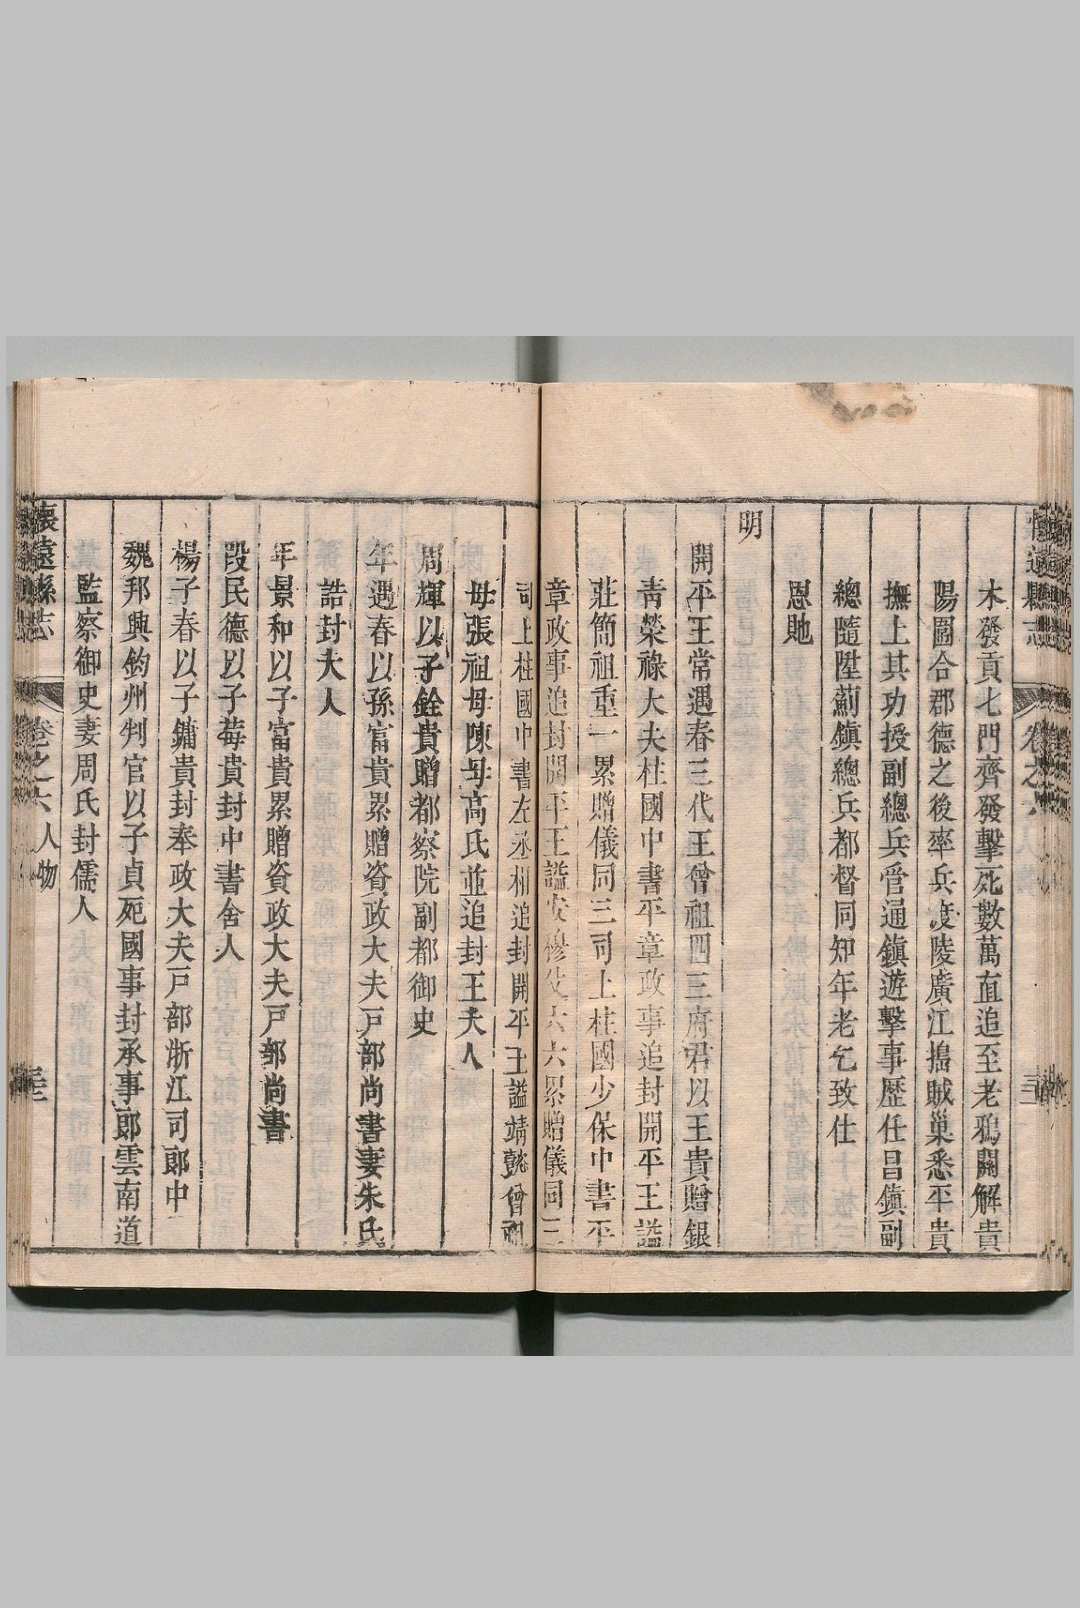 木發貢七門齊發擊死數萬直追至老鴉關解貴
陽圍合郡德之後率兵凌陵廣江搗賊巢悉平貴
撫上其功授副總兵管通鎮遊擊事歷任昌鎮副
總隨陞薊鎮總兵都督同知年老乞致仕
恩貤
明
開平王常遇春三代王曾祖四三府君以王貴贈銀
青榮祿大夫柱國中書平章政事追封開平王諡
莊簡祖重一累贈儀同三司上柱國少保中書平
章政事追封開平王諡安穆父六六累贈儀同三
司上柱國中書左丞相追封開平王諡靖懿曾祖
母張祖母陳母高氏並追封王夫人
周輝以子銓貴贈都察院副都御史
年遇春以孫富貴累贈資政大夫戸部尚書妻朱氏
誥封夫人
年景和以子富貴累贈資政大夫戸部尚書
段民德以子莓貴封中書舍人
楊子春以子鏞貴封奉政大夫戸部浙江司郎中
魏邦興鈞州判官以子貞死國事封承事郎雲南道
監察御史妻周氏封儒人
懷遠縣志 卷之六 人物